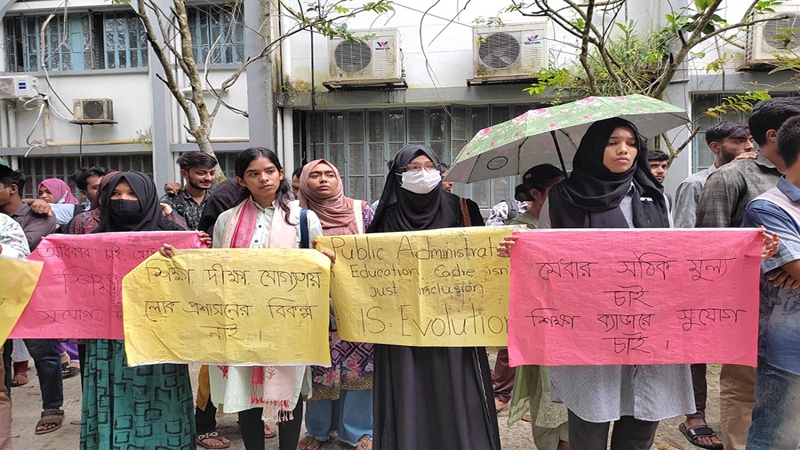 অধিকার চাই,
শিক্ষা
সুযোগ
শিক্ষা দীক্ষা যোগ্যতায়
লোক প্রশাসনের বিকল্প
নাই।
Public Administration
Education Cadre isn
just inclusion.
IS Evolution
মেধার সঠিক মূল্য
চাই
শিক্ষা ক্যাডারে সুযোগ
চাই।